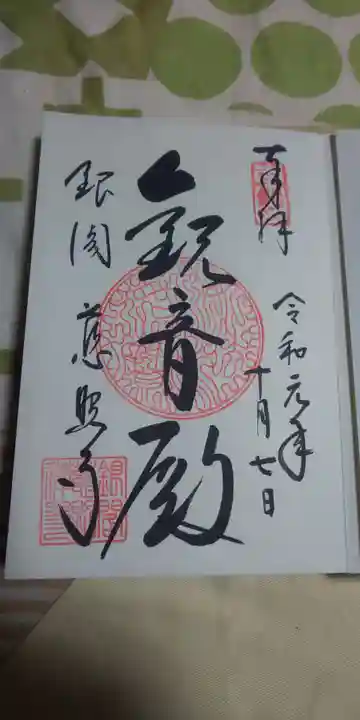 奉拝
令和元年
十月七日
観音殿
銀閣 慈照寺